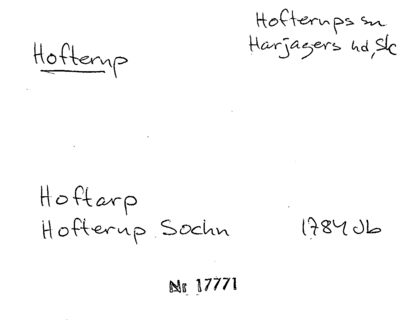 Hofterups sn
Hofterup
Harjagers hd, Sk
Hoftarp
Hofterup Sochn 1784 Jb
Nr 17771